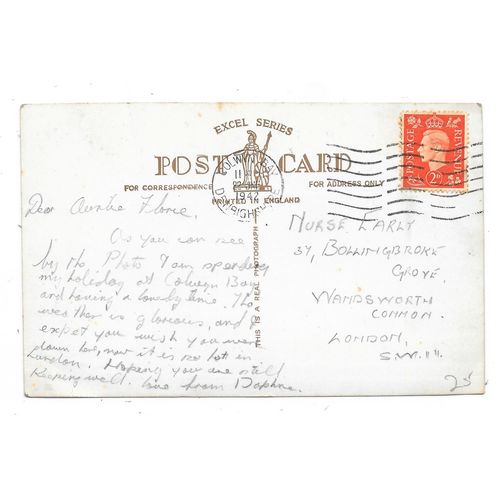 EXCEL SERIES
POST CARD
FOR CORRESPONDENCE
FOR ADDRESS ONLY
PRINTED IN ENGLAND
THIS IS A REAL PHOTOGRAPH
COLWYN BAY
1942
POSTAGE
REVENUE
Dear Auntie Florie.
As you can see
by the Photo I am spending
my holiday at Colwyn Bay
and having a lovely time. The
weather is glorious, and I
expect you wish you were
down here, now it is so hot in
London. Hoping you are still
keeping well. love from Daphne.
NURSE EARLY
37, BOLLINGBROKE
GROVE,
WANDSWORTH
COMMON.
LONDON.
S.W.11.
25